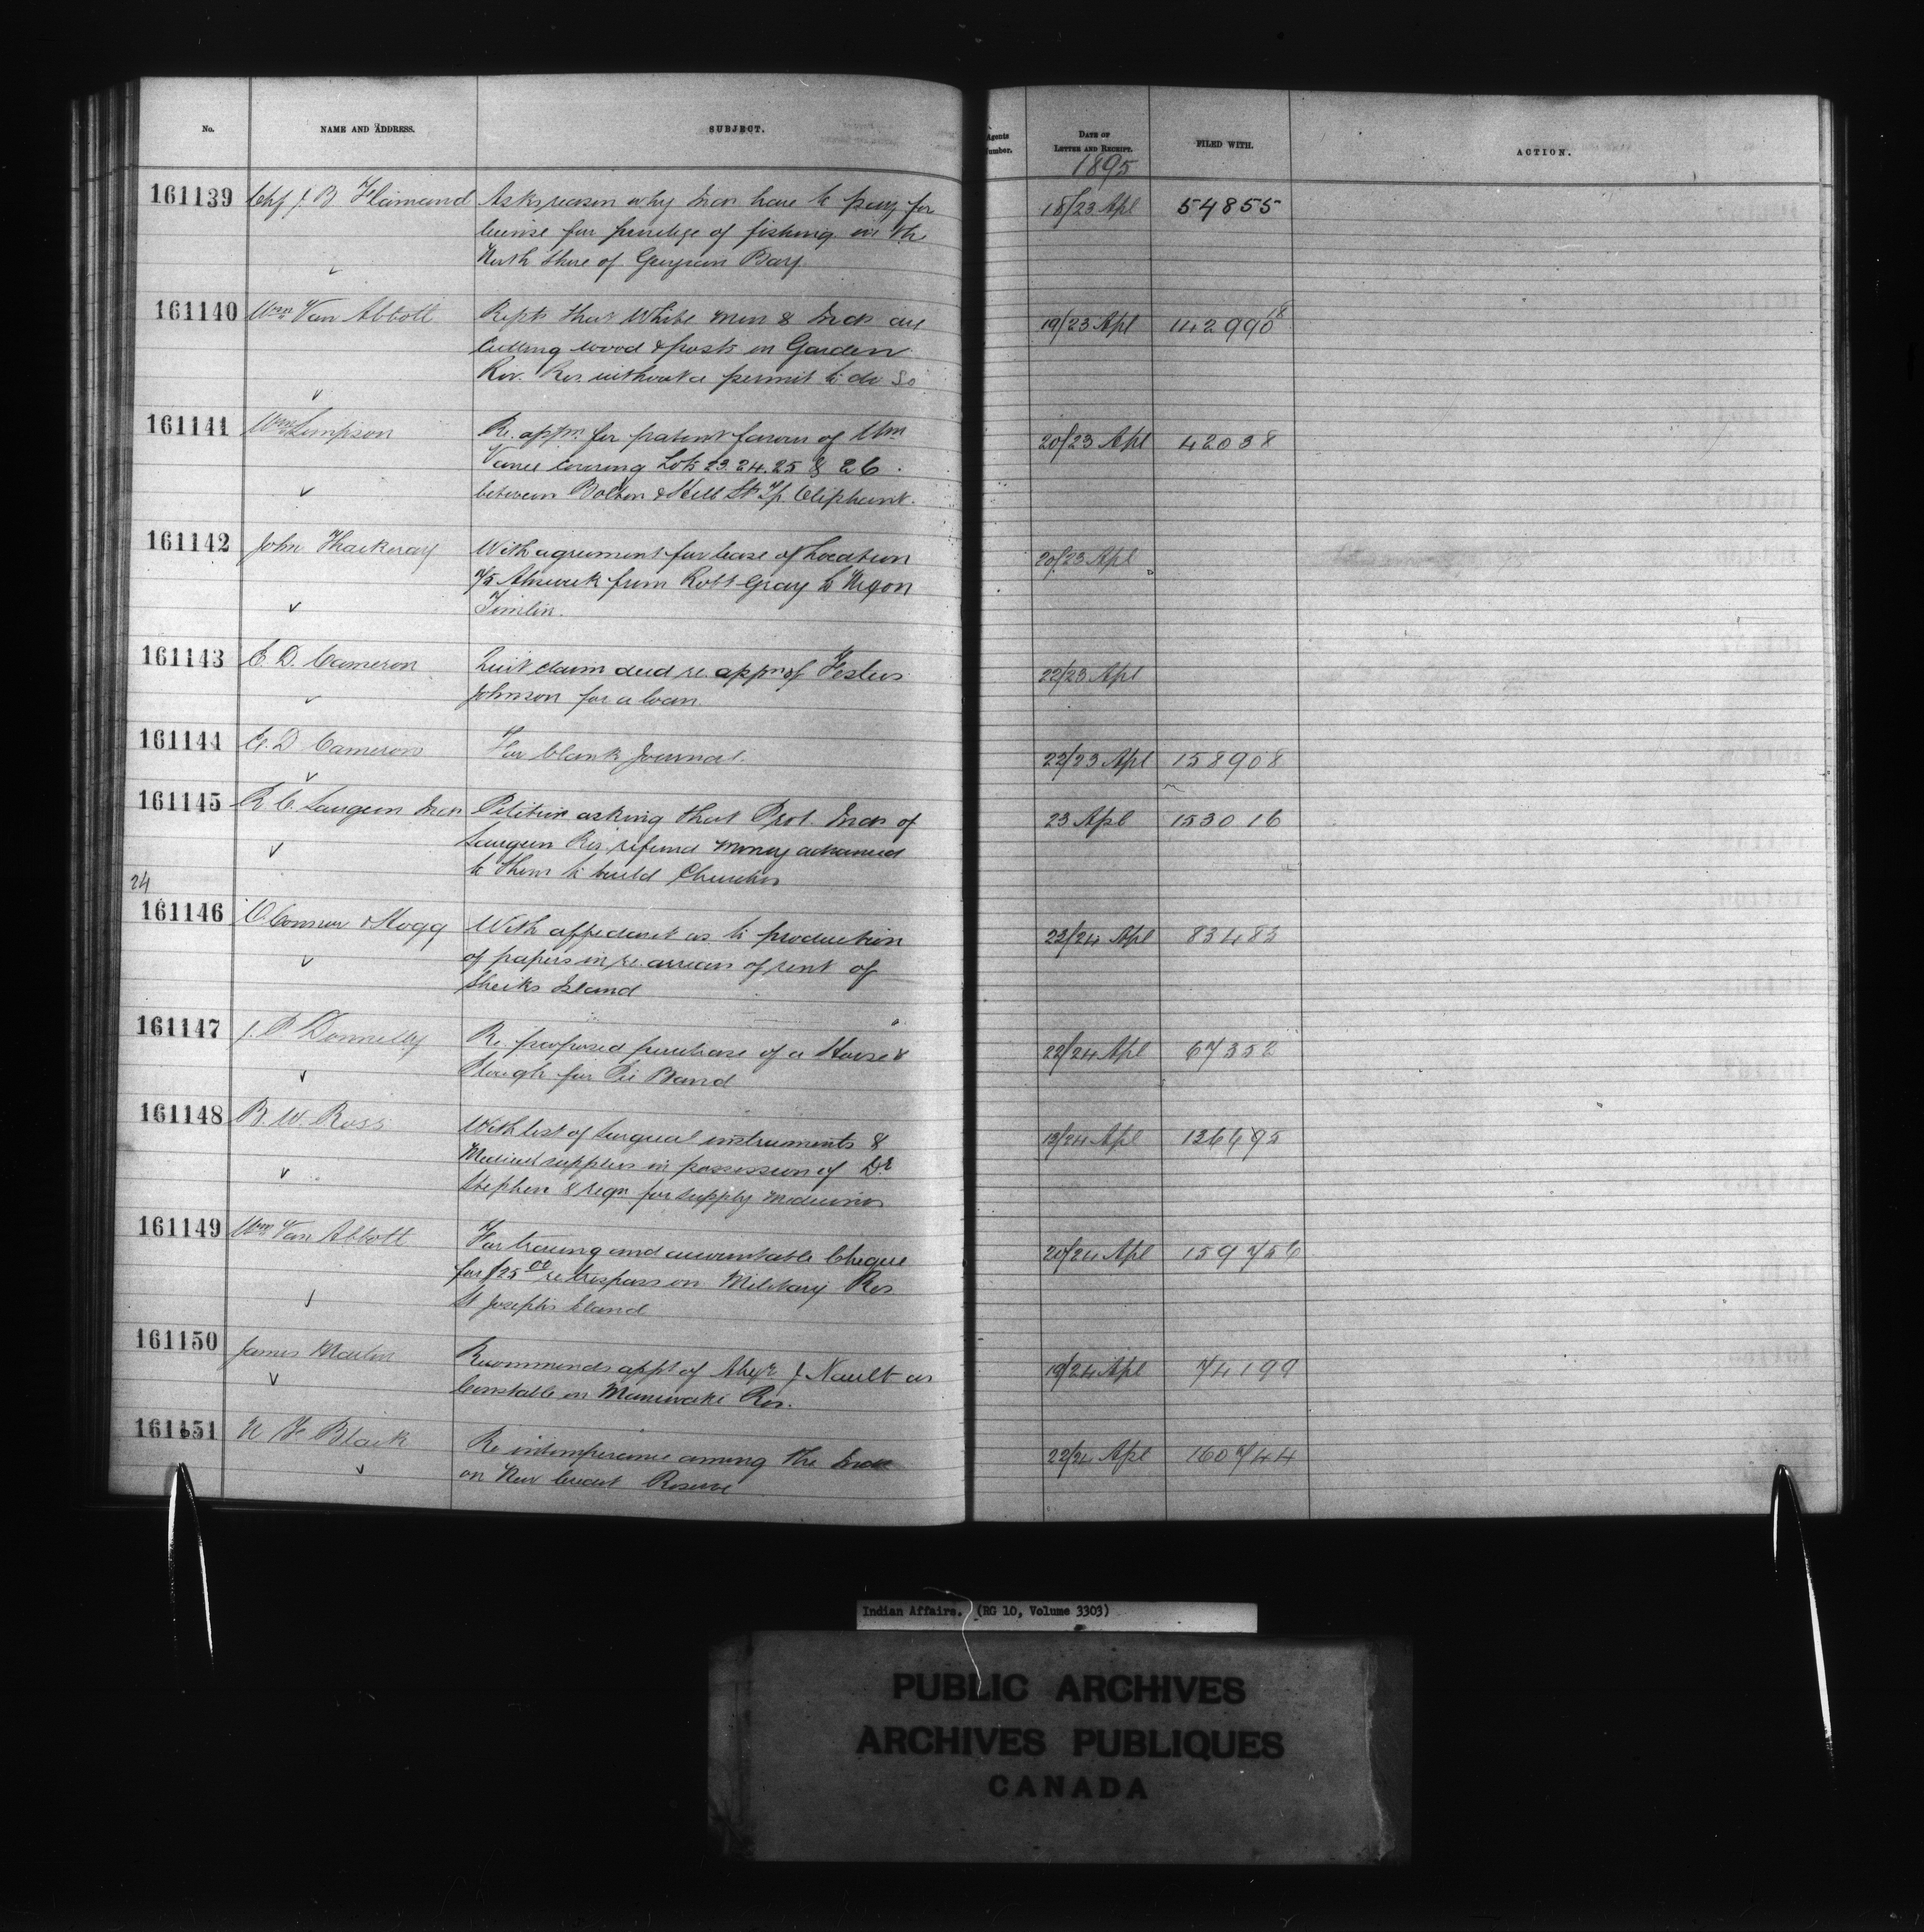 No. NAME AND ADDRESS. SUBJECT. Agents Number. DATE OF LETTER AND RECEIPT. FILED WITH. ACTION.
1895
161139 Chf J. B. Flamand Asks reason why Inds have to pay for 18/23 Apl 54855
license for privilege of fishing in the
North Shore of Georgian Bay.
161140 Wm Van Abbott Repts that White men & Inds are 19/23 Apl 142990 18
Cutting wood & posts on Garden
Riv. Res. without a permit to do so
161141 Wm Simpson Re. appn. for patent favour of Wm 20/23 Apl 42038
Vance covering Lots 23. 24. 25 & 26
between Bolton & Mill St Tp. Oliphant.
162142 John Thackeray With agreement for lease of Location 20/23 Apl
7/5 Alnwick from Robt Gray to
Timlin.
161143 E. D. Cameron Quit claim deed re. appn of Festus 22/23 Apl
Johnson for a loan.
161144 E. D. Cameron For blank Journal. 22/23 Apl 158908
161145 R. C. Saugeen Inds Petition asking that Prot. Inds of 23 Apl 153016
Saugeen Res. refund money advanced
to them to build Churches
24
161146 O'Connor & Hogg With affidavit as to production 23/24 Apl 83483
of papers in re. arrears of rent of
Sheiks Island
161147 J. P. Donnelly Re. proposed purchase of a Horse & 22/24 Apl 67352
Plough for Pic Band
161148 B. W. Ross With list of Surgical instruments & 13/24 Apl 136495
Medical supplies in possession of Dr
Stephen & reqn for supply medicines
161149 Wm Van Abbott For tracing and accountable Cheque 20/24 Apl 159756
for $25 00 re trespass on Military Res
St Joseph's Island
161150 James Martin Recommends appt of J Nault as 19/24 Apl 74199
Constable on Maniwaki Res.
161151 Black Re intemperance among the Inds 22/24 Apl 160744
on New Credit Reserve
Indian Affairs. (RG 10, Volume 3303)
PUBLIC ARCHIVES
ARCHIVES PUBLIQUES
CANADA